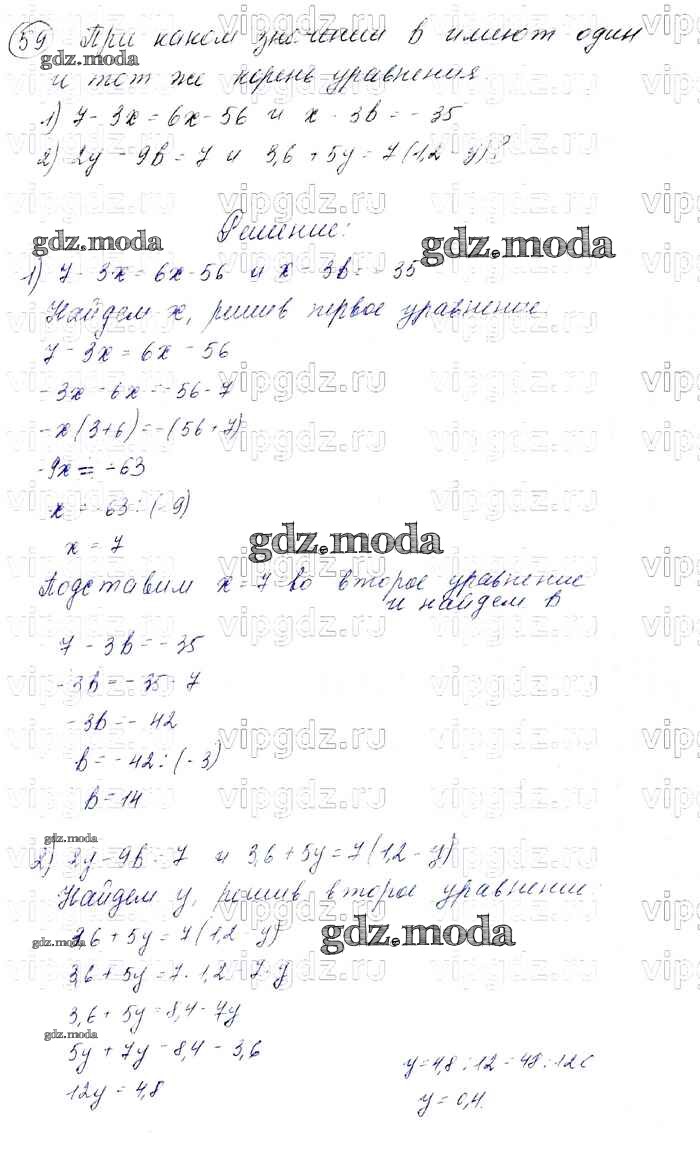 59 При каком значении b имеют один
gdz.moda
и тот же корень уравнения
1) 7-3x=6x-56 и x-3b=-35
2) 2y-9b=7 и 3,6+5y=7(1,2-y)?
Решение:
gdz.moda gdz.moda
1) 7-3x=6x-56 и x-3b=-35
Найдем x, решив первое уравнение.
7-3x=6x-56
-3x-6x=-56-7
-x(3+6)=-(56+7)
-9x=-63
x=-63:(-9)
x=7
gdz.moda
Подставим x=7 во второе уравнение
и найдем b
7-3b=-35
-3b=-35-7
-3b=-42
b=-42:(-3)
b=14
gdz.moda
2) 2y-9b=7 и 3,6+5y=7(1,2-y)
Найдем y, решив второе уравнение:
3,6+5y=7(1,2-y)
gdz.moda gdz.moda
3,6+5y=7·1,2-7·y
3,6+5y=8,4-7y
gdz.moda
5y+7y=8,4-3,6
12y=4,8
y=4,8:12=48:120
y=0,4.
vipgdz.ru